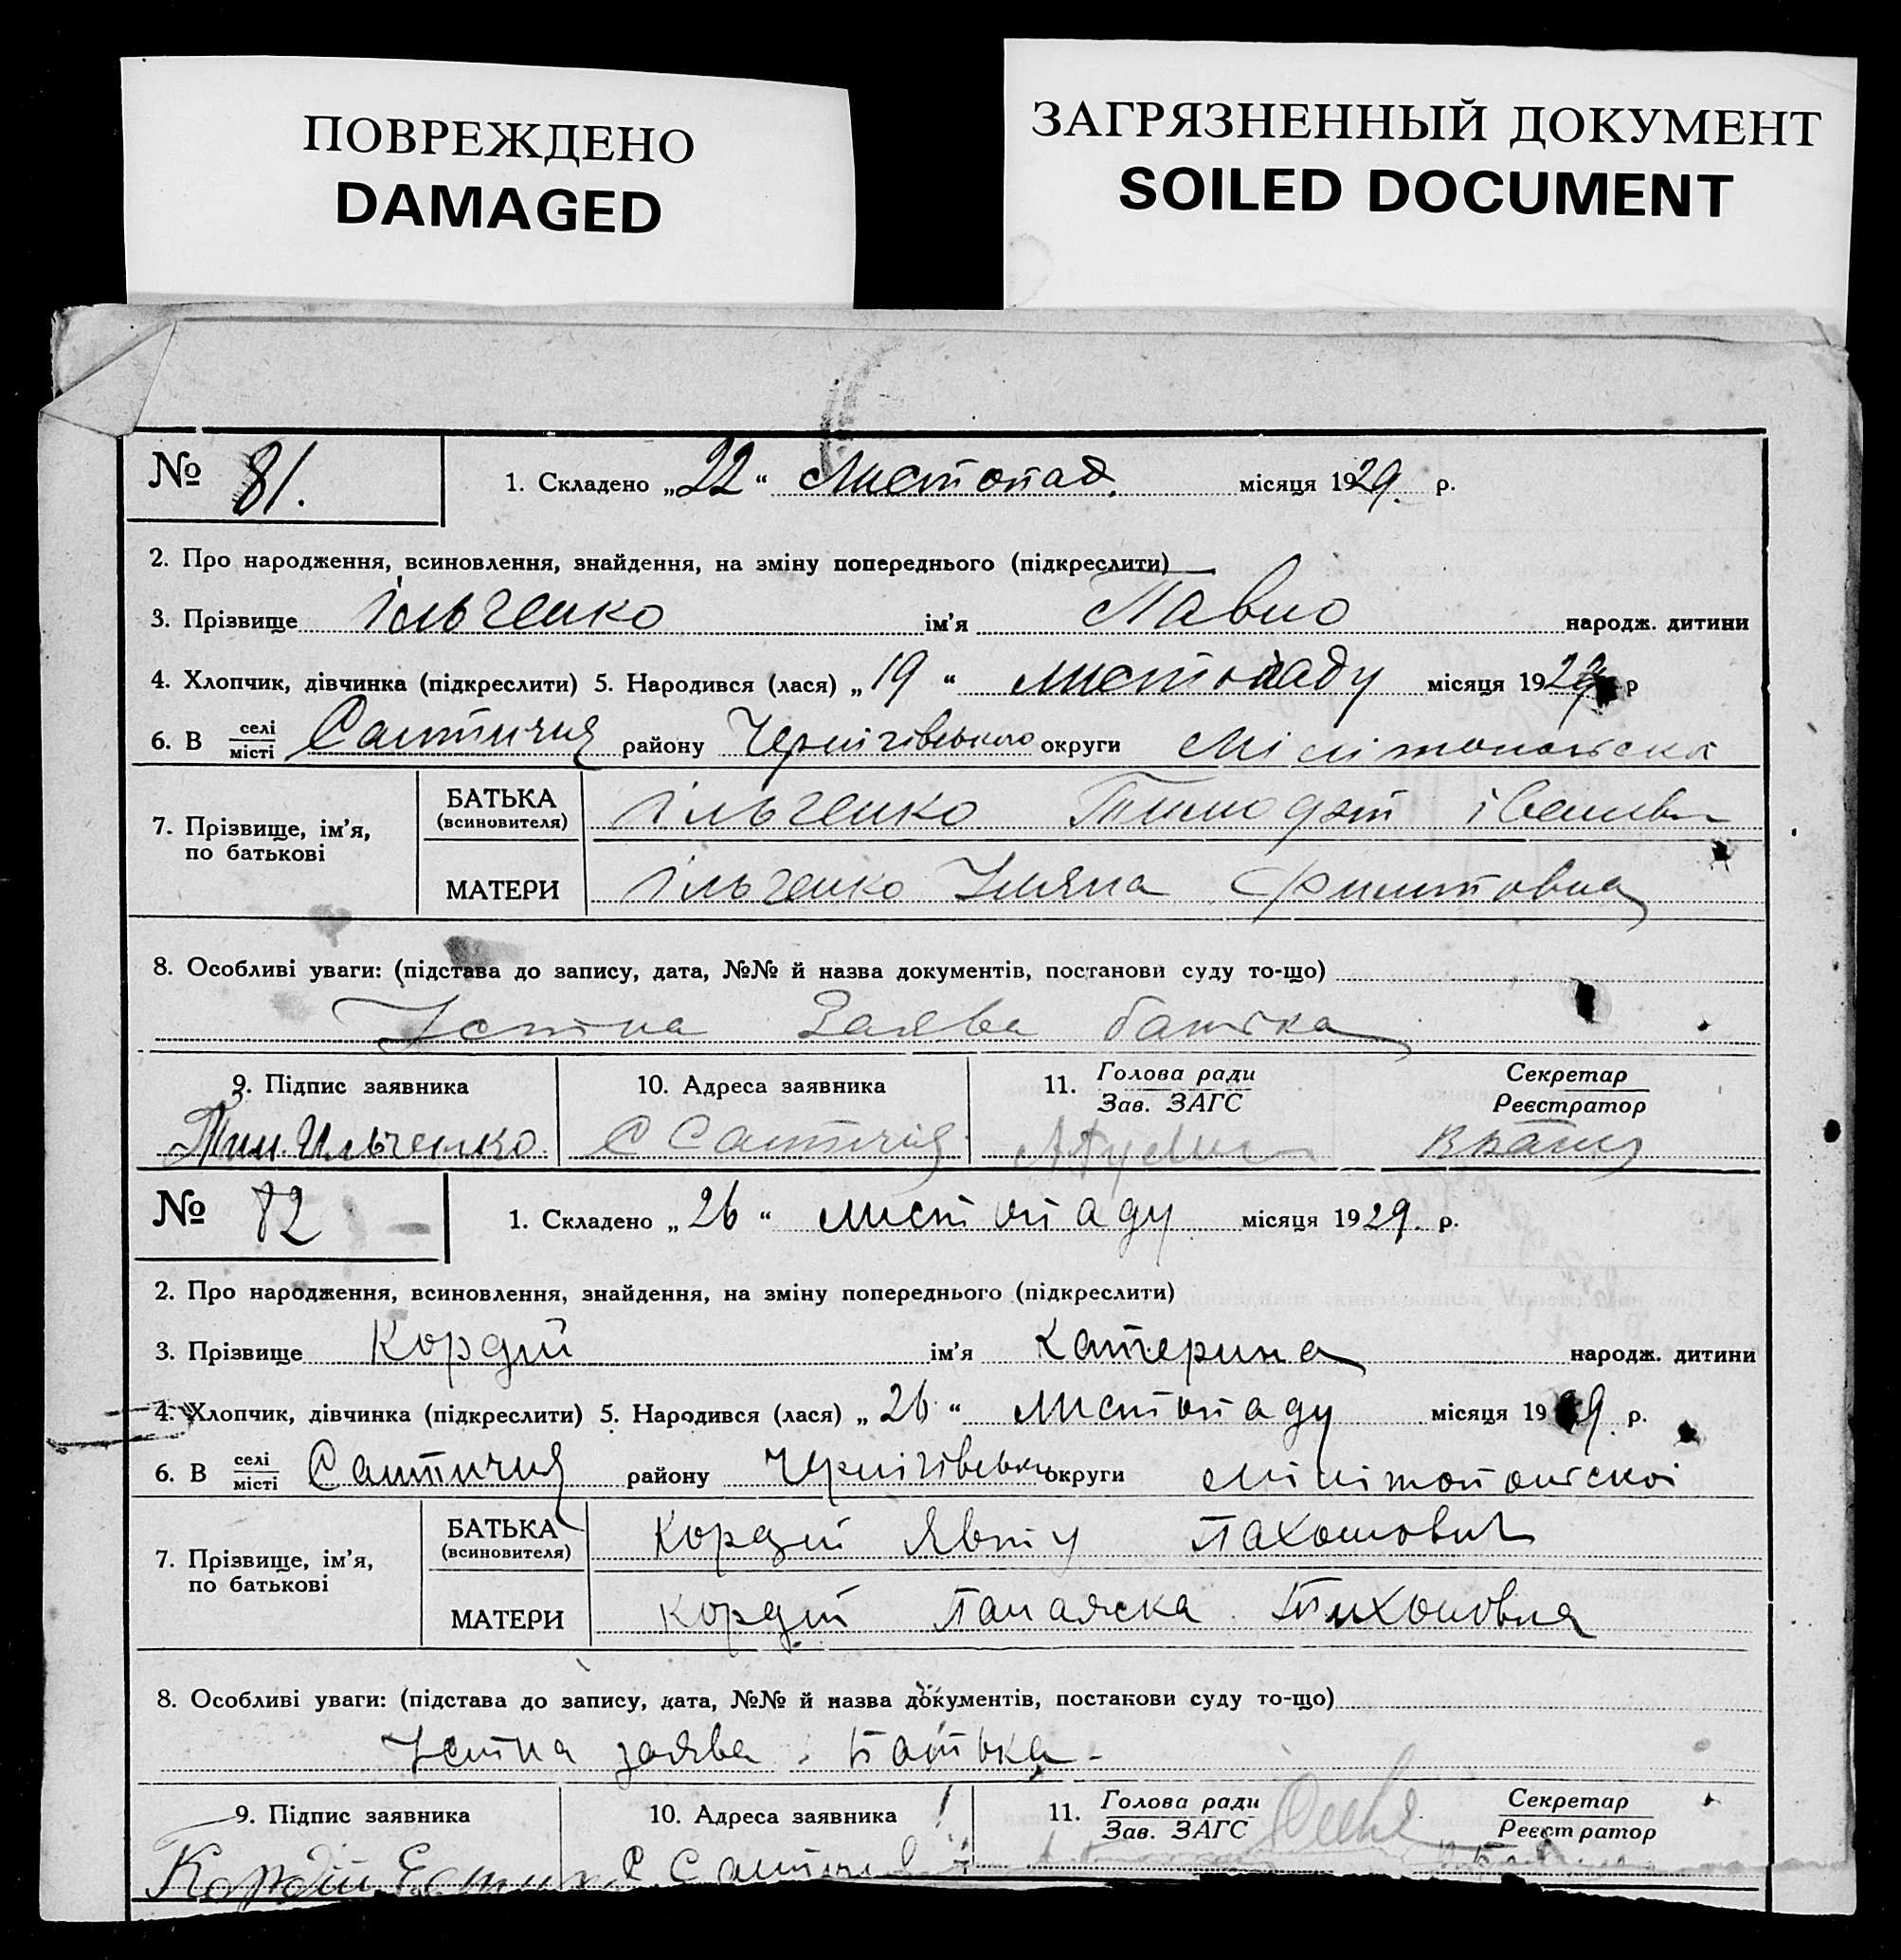 ПОВРЕЖДЕНО
DAMAGED
ЗАГРЯЗНЕННЫЙ ДОКУМЕНТ
SOILED DOCUMENT
№ 81. 1. Складено „22“ Листопад. місяця 1929. р.
2. Про народження, всиновлення, знайдення, на зміну попереднього (підкреслити)
3. Прізвище Ільченко ім'я Павло народж. дитини
4. Хлопчик, дівчинка (підкреслити) 5. Народився (лася) „19“ листопаду місяця 1929 р
6. В селі/місті району Чернігівського округи
7. Прізвище, ім'я, по батькові
БАТЬКА (всиновителя) Ільченко Тимофій
МАТЕРИ Ільченко Уляна
8. Особливі уваги: (підстава до запису, дата, №№ й назва документів, постанови суду то-що)
Устна Заява батька
9. Підпис заявника 10. Адреса заявника 11. Голова ради/Зав. ЗАГС Секретар/Реєстратор
Тим. Ильченко С
№ 82 1. Складено „26“ листопаду місяця 1929. р.
2. Про народження, всиновлення, знайдення, на зміну попереднього (підкреслити)
3. Прізвище Кордій ім'я Катерина народж. дитини
4. Хлопчик, дівчинка (підкреслити) 5. Народився (лася) „26“ листопаду місяця 1929. р.
6. В селі/місті району округи
7. Прізвище, ім'я, по батькові
БАТЬКА (всиновителя) Кордій Явту Пахомович
МАТЕРИ Кордій Панаяска Тихоновна
8. Особливі уваги: (підстава до запису, дата, №№ й назва документів, постанови суду то-що)
Устна заява батька
9. Підпис заявника 10. Адреса заявника 11. Голова ради/Зав. ЗАГС Секретар/Реєстратор
Кордій С